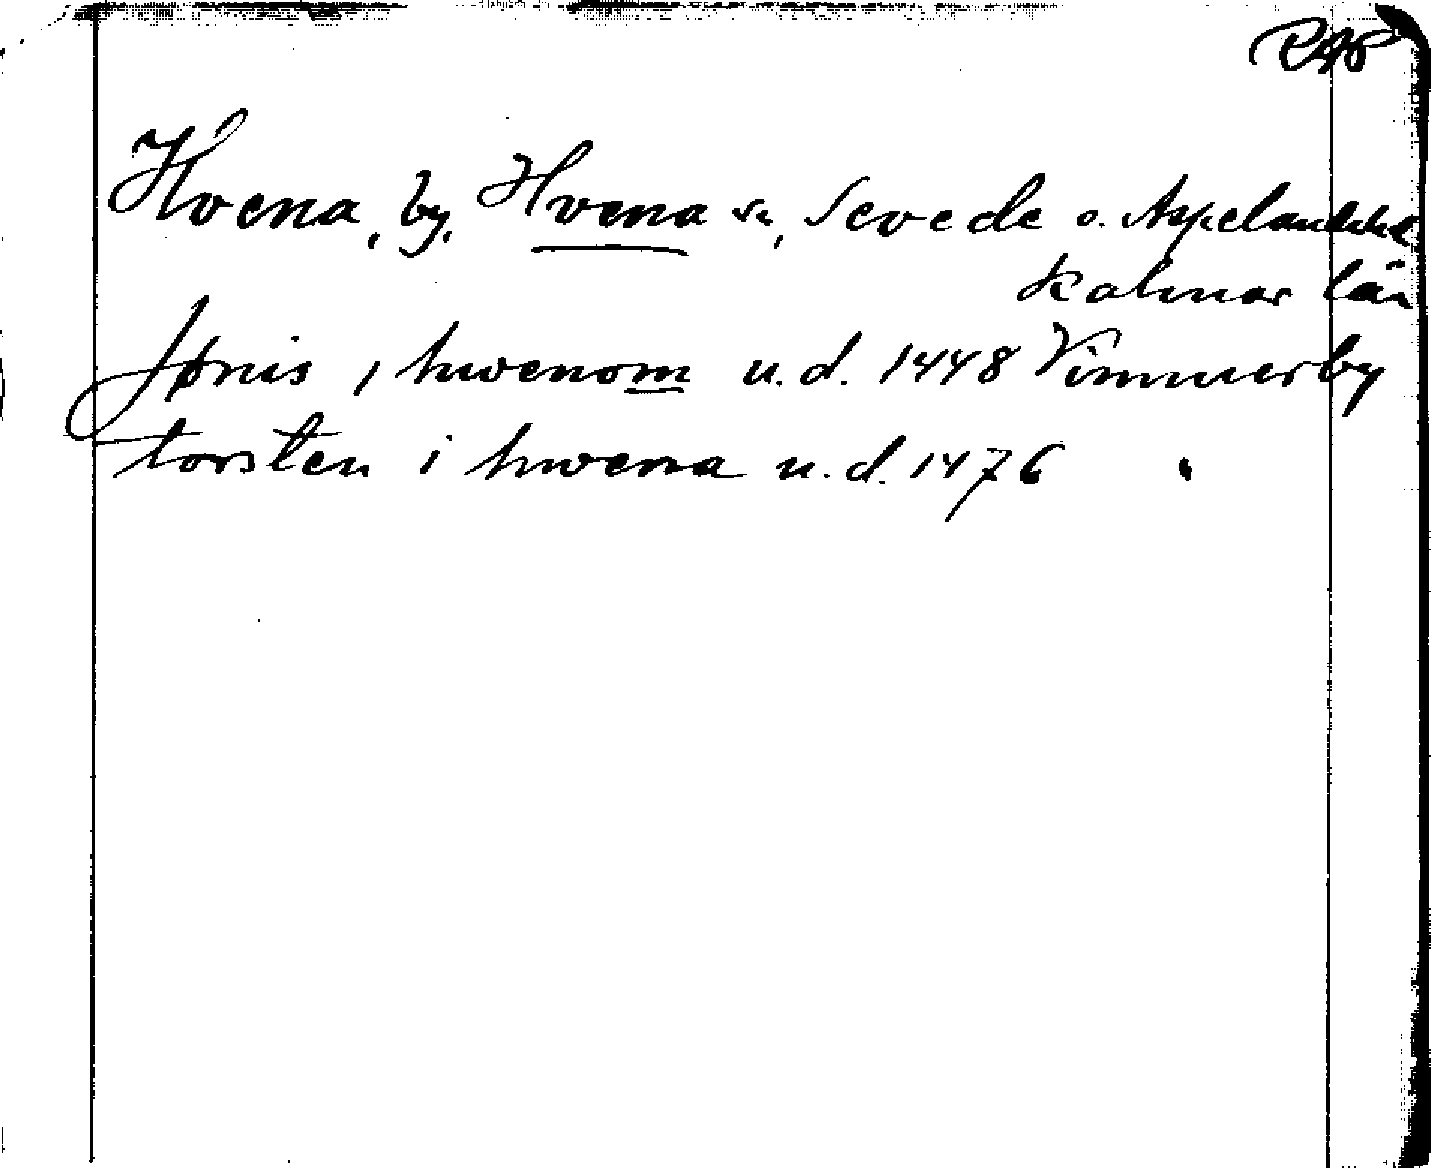 Hvena, by, Hvena sn, Sevede o. Aspelands hd
Kalmar län
Jønis i hwenom u.d. 1448 Vimmerby
torsten i hwena u.d. 1476 "